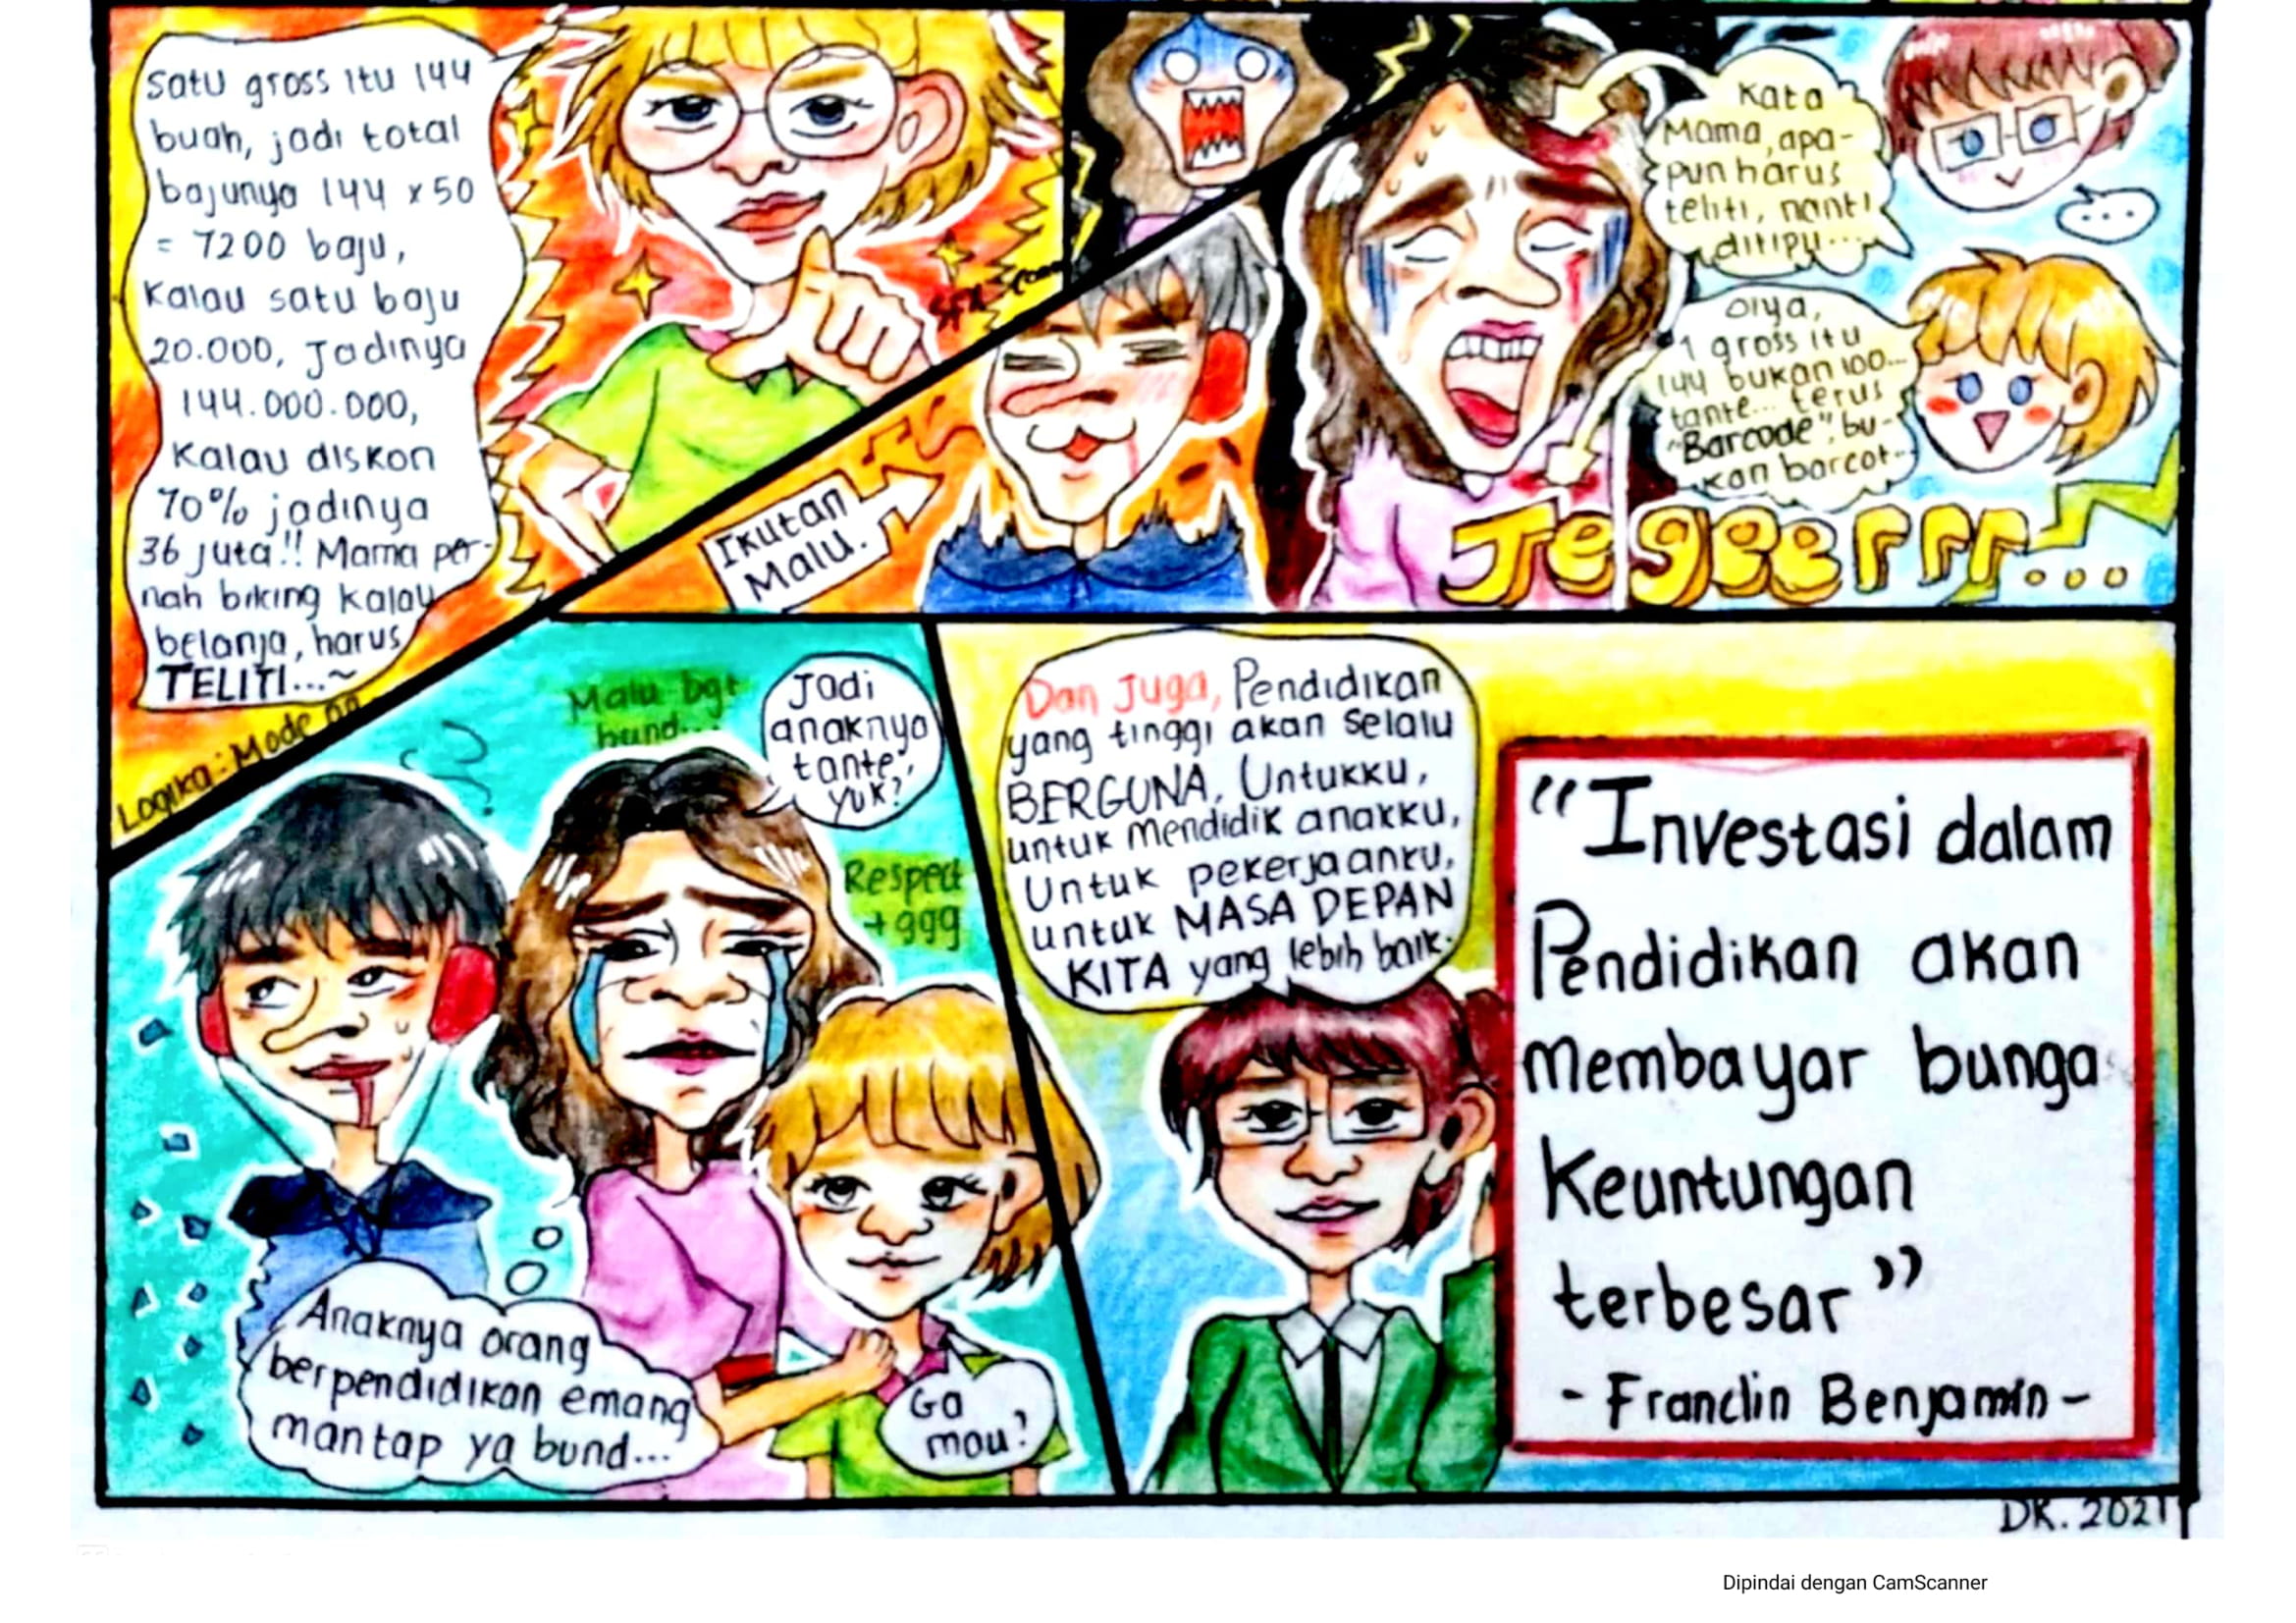 Satu gross itu 144
buah, jadi total
bajunya 144 x 50
= 7200 baju,
Kalau satu baju
20.000, Jadinya
144.000.000,
Kalau diskon
70% jadinya
36 juta!! Mama per-
nah biking kalau
belanja, harus
TELITI...~
Logika: Mode on
Ikutan
Malu.
Kata
Mama, apa-
pun harus
teliti, nanti
ditipu...
...
Oiya,
1 gross itu
144 bukan 100...
tante... terus
"Barcode", bu-
kan barcot..
Jegeerrr...
Malu bgt
bund...
Jadi
anaknya
tante,
yuk?
Respect
+999
Anaknya orang
berpendidikan emang
mantap ya bund...
Ga
mau?
Dan Juga, Pendidikan
yang tinggi akan selalu
BERGUNA, Untukku,
untuk mendidik anakku,
Untuk pekerjaanku,
untuk MASA DEPAN
KITA yang lebih baik.
"Investasi dalam
Pendidikan akan
membayar bunga
Keuntungan
terbesar"
- Franclin Benjamin -
DK. 2021
Dipindai dengan CamScanner